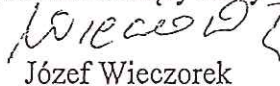 Józef Wieczorek